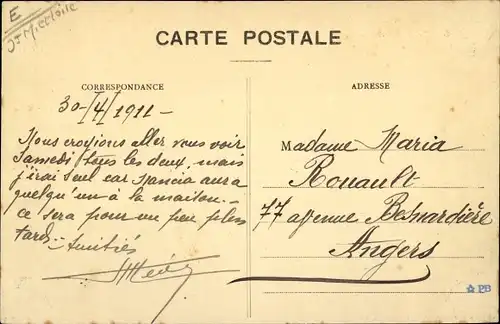 E
CARTE POSTALE
CORRESPONDANCE
ADRESSE
30-/4/1911-
Nous croyions aller vous voir
Samedi tous les deux, mais
j'irai seul car Nancia aura
quelqu'un à la maison.-
ce sera pour un peu plus
tard.- Amitiés
Madame Maria
Rouault
77 avenue Besnardière
Angers
PB